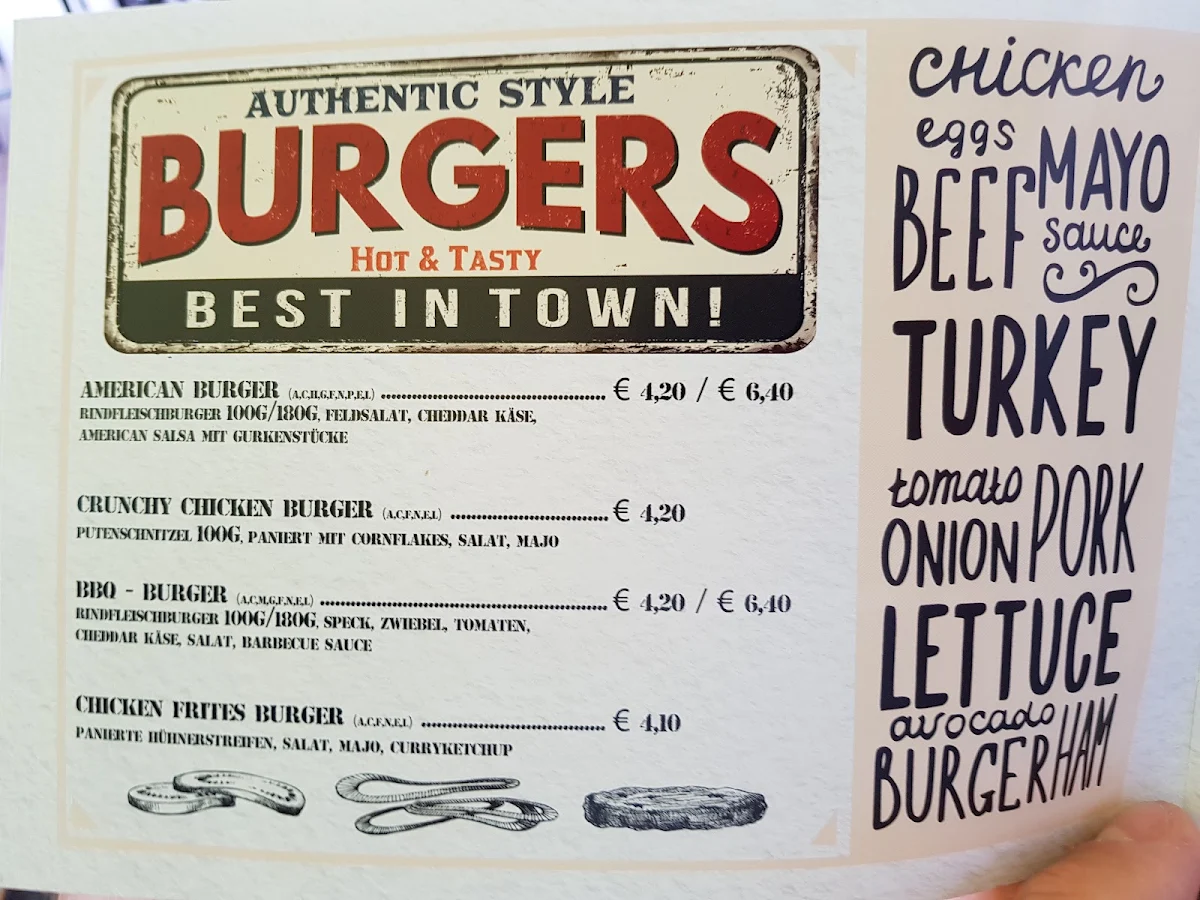 AUTHENTIC STYLE
BURGERS
HOT & TASTY
BEST IN TOWN!
AMERICAN BURGER (A,C,H,G,F,N,P,E,L) € 4,20 / € 6,40
RINDFLEISCHBURGER 100G/180G, FELDSALAT, CHEDDAR KÄSE,
AMERICAN SALSA MIT GURKENSTÜCKE
CRUNCHY CHICKEN BURGER (A,C,F,N,E,L) € 4,20
PUTENSCHNITZEL 100G, PANIERT MIT CORNFLAKES, SALAT, MAJO
BBQ - BURGER (A,C,M,G,F,N,E,L) € 4,20 / € 6,40
RINDFLEISCHBURGER 100G/180G, SPECK, ZWIEBEL, TOMATEN,
CHEDDAR KÄSE, SALAT, BARBECUE SAUCE
CHICKEN FRITES BURGER (A,C,F,N,E,L) € 4,10
PANIERTE HÜHNERSTREIFEN, SALAT, MAJO, CURRYKETCHUP
CHicken
eggs
BEEF MAYO
sauce
TURKEY
tomato
ONION PORK
LETTUCE
avocado
BURGER HAM